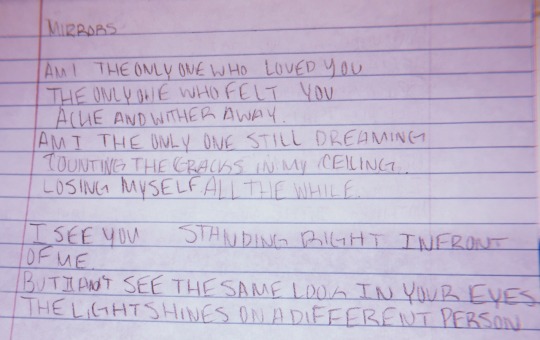 MIRRORS
AM I THE ONLY ONE WHO LOVED YOU
THE ONLY ONE WHO FELT YOU
ACHE AND WITHER AWAY.
AM I THE ONLY ONE STILL DREAMING
COUNTING THE CRACKS IN MY CEILING.
LOSING MYSELF ALL THE WHILE.
I SEE YOU STANDING RIGHT INFRONT
OF ME.
BUT I CAN'T SEE THE SAME LOOK IN YOUR EYES
THE LIGHT SHINES ON A DIFFERENT PERSON